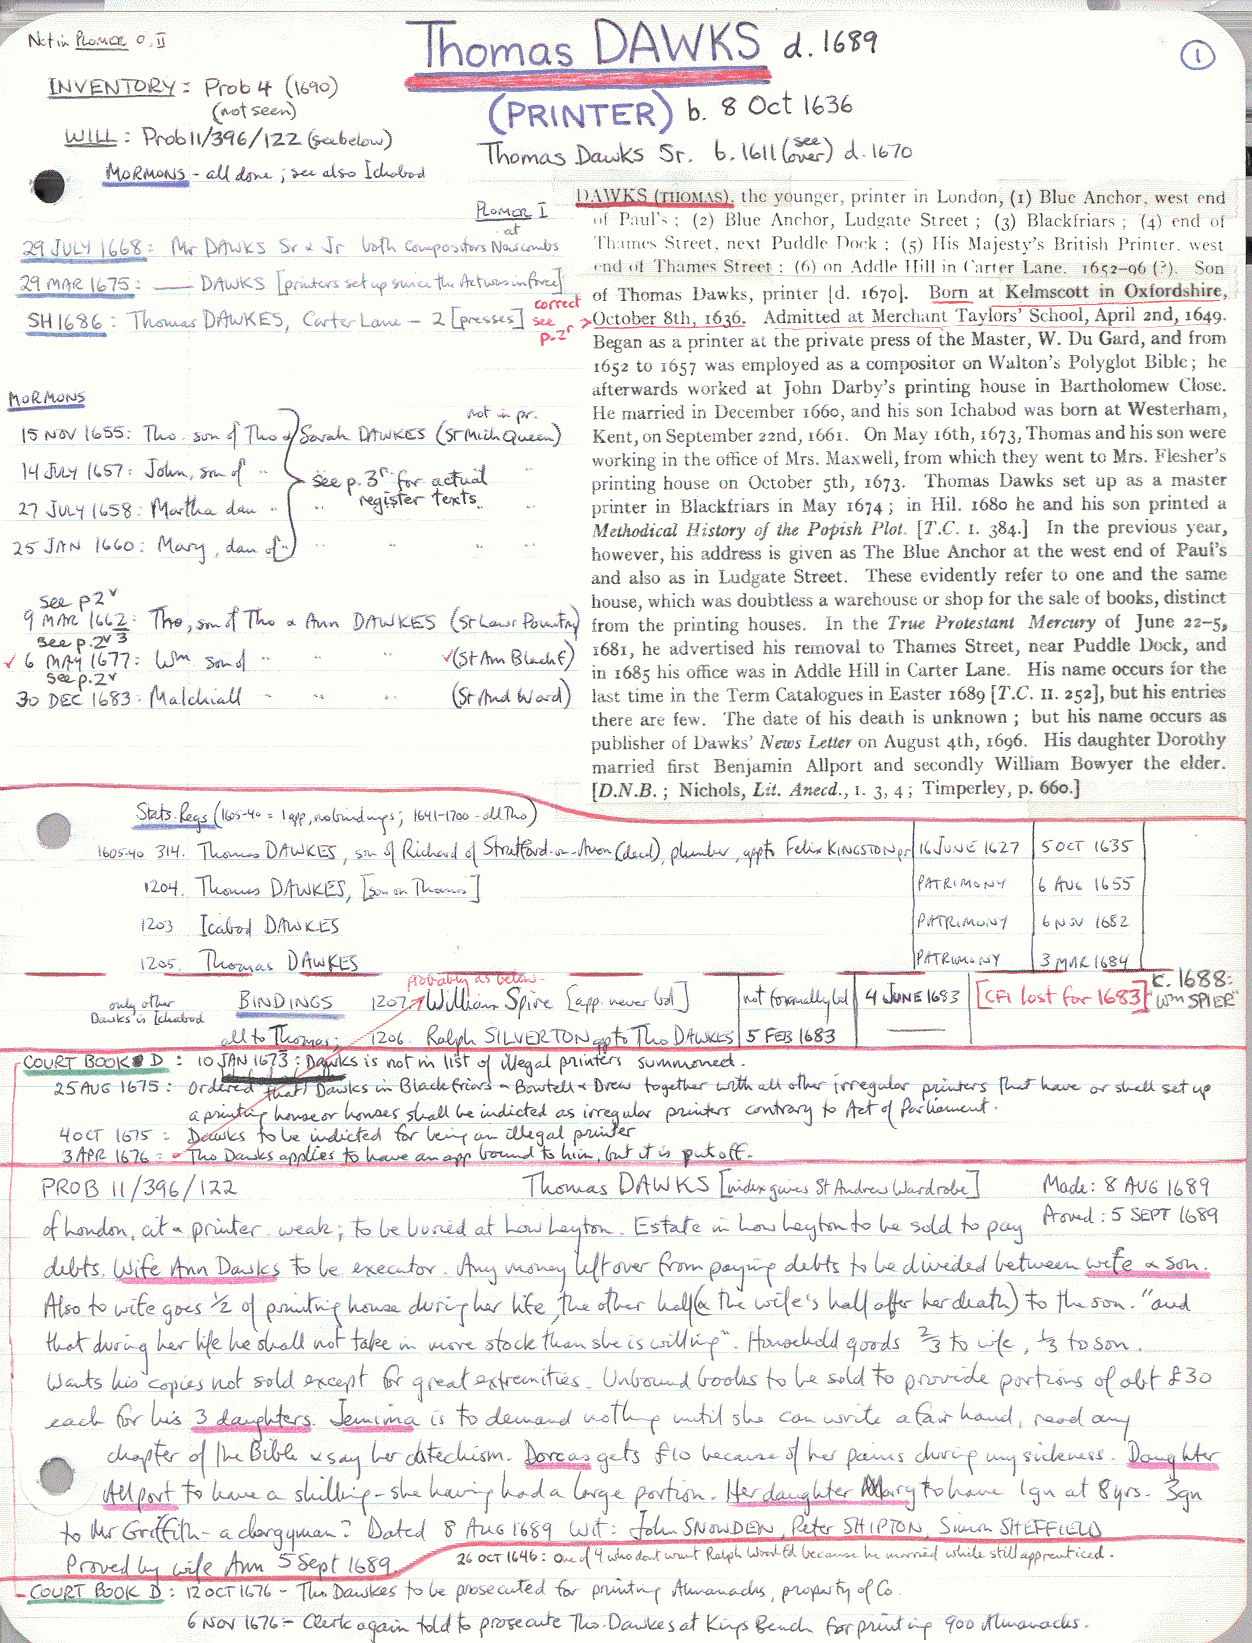 Not in PLOMER 0, II
Thomas DAWKS d. 1689
1
INVENTORY: Prob 4 (1690)
(not seen)
(PRINTER) b. 8 Oct 1636
WILL: Prob 11/396/122 (see below)
Thomas Dawks Sr. b. 1611 (see over) d. 1670
MORMONS - all done; see also Ichabod
PLOMER I
29 JULY 1668: Mr DAWKS Sr & Jr both compositors at Newcombs
29 MAR 1675: —— DAWKS [printers set up since the Act was in force]
SH 1686: Thomas DAWKES, Carter Lane - 2 [presses]
correct see p. 2r
DAWKS (THOMAS), the younger, printer in London, (1) Blue Anchor, west end
of Paul's; (2) Blue Anchor, Ludgate Street; (3) Blackfriars; (4) end of
Thames Street, next Puddle Dock; (5) His Majesty's British Printer, west
end of Thames Street; (6) on Addle Hill in Carter Lane. 1652-96 (?). Son
of Thomas Dawks, printer [d. 1670]. Born at Kelmscott in Oxfordshire,
October 8th, 1636. Admitted at Merchant Taylors' School, April 2nd, 1649.
Began as a printer at the private press of the Master, W. Du Gard, and from
1652 to 1657 was employed as a compositor on Walton's Polyglot Bible; he
afterwards worked at John Darby's printing house in Bartholomew Close.
He married in December 1660, and his son Ichabod was born at Westerham,
Kent, on September 22nd, 1661. On May 16th, 1673, Thomas and his son were
working in the office of Mrs. Maxwell, from which they went to Mrs. Flesher's
printing house on October 5th, 1673. Thomas Dawks set up as a master
printer in Blackfriars in May 1674; in Hil. 1680 he and his son printed a
Methodical History of the Popish Plot. [T.C. I. 384.] In the previous year,
however, his address is given as The Blue Anchor at the west end of Paul's
and also as in Ludgate Street. These evidently refer to one and the same
house, which was doubtless a warehouse or shop for the sale of books, distinct
from the printing houses. In the True Protestant Mercury of June 22-5,
1681, he advertised his removal to Thames Street, near Puddle Dock, and
in 1685 his office was in Addle Hill in Carter Lane. His name occurs for the
last time in the Term Catalogues in Easter 1689 [T.C. II. 252], but his entries
there are few. The date of his death is unknown; but his name occurs as
publisher of Dawks' News Letter on August 4th, 1696. His daughter Dorothy
married first Benjamin Allport and secondly William Bowyer the elder.
[D.N.B.; Nichols, Lit. Anecd., I. 3, 4; Timperley, p. 660.]
MORMONS
not in pr.
15 NOV 1655: Tho. son of Tho & Sarah DAWKES (St Mich Queen)
14 JULY 1657: John, son of " " "
27 JULY 1658: Martha dau " " " "
25 JAN 1660: Mary, dau of " " " " "
see p. 3r for actual
register texts.
see p 2v
9 MAR 1662: Tho, son of Tho & Ann DAWKES (St Lawr Pountny)
3
see p. 2v
✓ 6 MAY 1677: Wm son of " " " ✓(St Ann Black F)
see p. 2v
30 DEC 1683: Malchiall " " " (St And Ward)
Stats. Regs (1605-40 = 1 app, no bindings; 1641-1700 - all Tho)
1605-40 314. Thomas DAWKES, son of Richard of Stratford-on-Avon (decd), plumber, app to Felix KINGSTON pr 16 JUNE 1627 5 OCT 1635
1204. Thomas DAWKES, [son on Thomas] PATRIMONY 6 AUG 1655
1203 Icabod DAWKES PATRIMONY 6 NOV 1682
1205. Thomas DAWKES PATRIMONY 3 MAR 1684
probably as below
only other Dawks is Ichabod
BINDINGS 1207. William Spire [app. never bd] not formally bd 4 JUNE 1683 [CFI lost for 1683] c. 1688: "Wm SPIER"
all to Thomas: 1206. Ralph SILVERTON app to Tho DAWKES 5 FEB 1683 ——
COURT BOOK D: 10 JAN 1673: Dawks is not in list of illegal printers summoned.
25 AUG 1675: Ordered that Dawks in Blackfriars & Bowtell & Drew together with all other irregular printers that have or shall set up
a printing house or houses shall be indicted as irregular printers contrary to Act of Parliament.
4 OCT 1675: Dawks to be indicted for being an illegal printer
3 APR 1676: - Tho Dawks applies to have an app bound to him, but it is put off.
PROB 11/396/122 Thomas DAWKS [index gives St Andrew Wardrobe] Made: 8 AUG 1689
Proved: 5 SEPT 1689
of London, cit & printer. weak; to be buried at Low Leyton. Estate in Low Leyton to be sold to pay
debts. Wife Ann Dawks to be executor. Any money left over from paying debts to be divided between wife & son.
Also to wife goes ½ of printing house during her life, the other half (& the wife's half after her death) to the son. "and
that during her life he shall not take in more stock than she is willing". Household goods ⅔ to wife, ⅓ to son.
Wants his copies not sold except for great extremities. Unbound books to be sold to provide portions of abt £30
each for his 3 daughters. Jemima is to demand nothing until she can write a fair hand, read any
chapter of the Bible & say her catechism. Dorcas gets £10 because of her pains during my sickness. Daughter
Allport to have a shilling - she having had a large portion. Her daughter Mary to have 1gn at 8 yrs. 3gn
to Mr Griffith - a clergyman? Dated 8 AUG 1689 Wit: John SNOWDEN, Peter SHIPTON, Simon SHEFFIELD
Proved by wife Ann 5 Sept 1689.
26 OCT 1646: One of 4 who dont want Ralph Wood Ed because he married while still apprenticed.
COURT BOOK D: 12 OCT 1676 - Tho Dawkes to be prosecuted for printing Almanacks, property of Co.
6 NOV 1676 - Clerk again told to prosecute Tho. Dawkes at Kings Bench for printing 900 Almanacks.